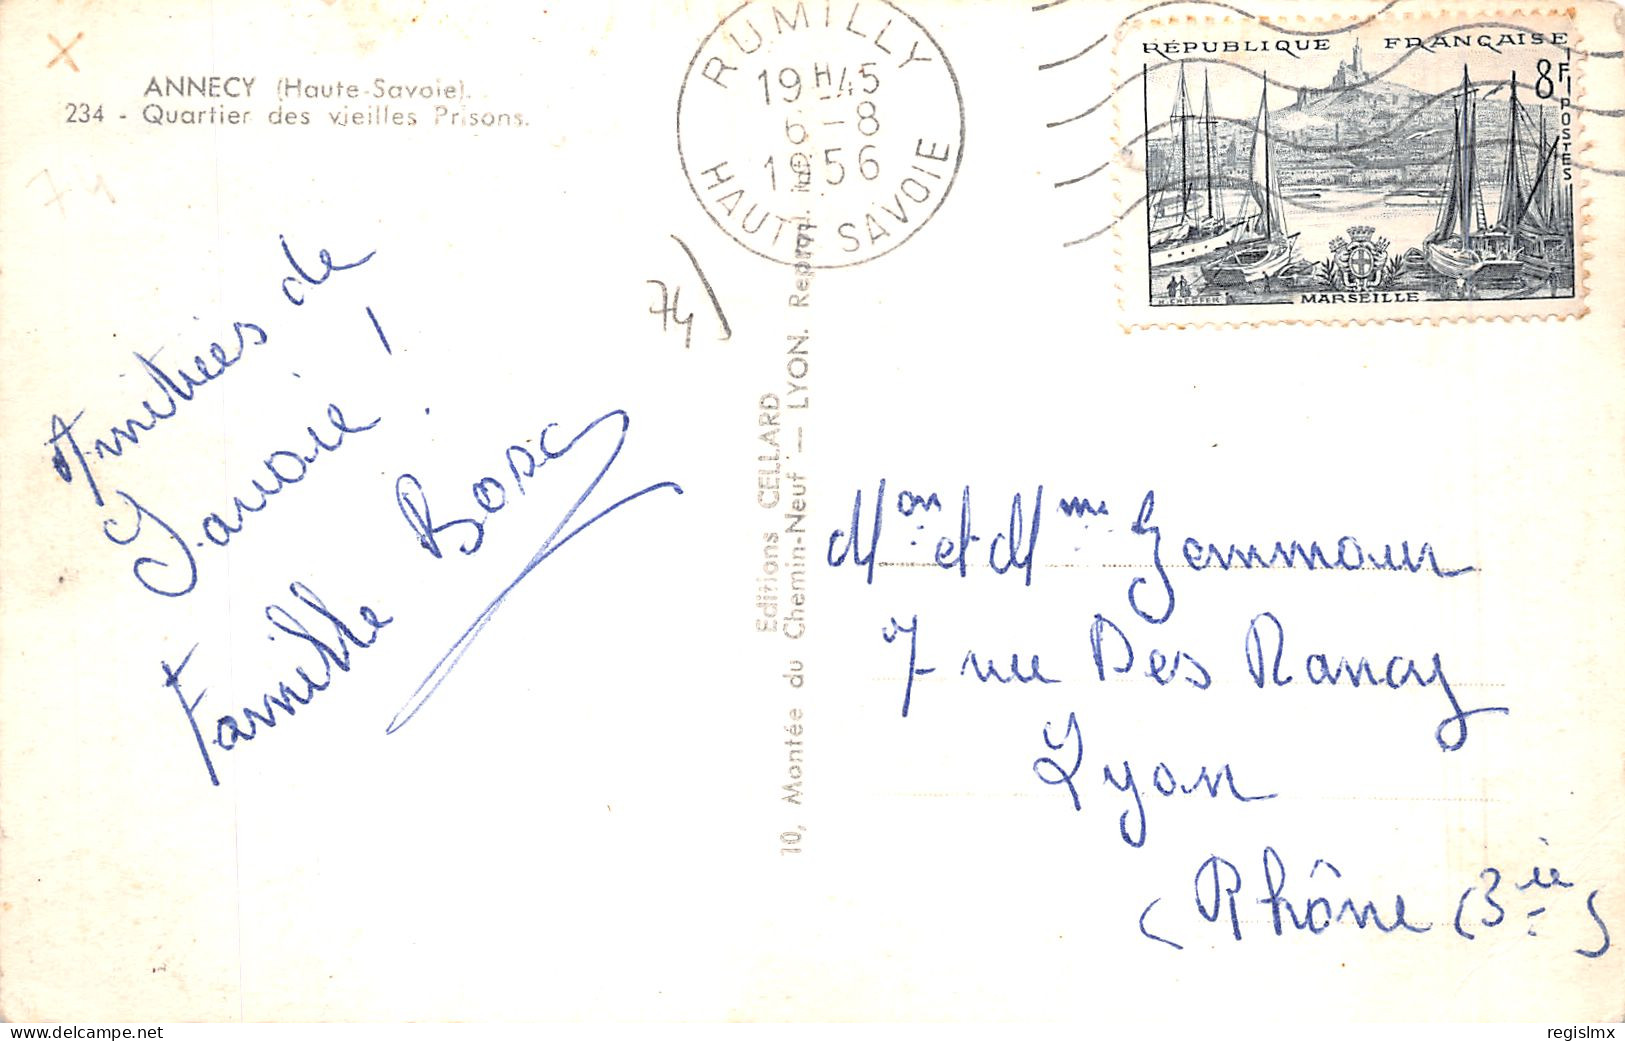 ANNECY (Haute-Savoie).
234 - Quartier des vieilles Prisons.
74
RUMILLY
19H45
6-8
1956
HAUTE SAVOIE
RÉPUBLIQUE FRANÇAISE
8F
POSTES
MARSEILLE
74)
Amitiés de
Savoie !
Famille Bosc
Editions CELLARD
10, Montée du Chemin-Neuf — LYON. Reprod.
Mon et Mme Zemmour
7 rue Des Rancy
Lyon
(Rhône (3ie)
www.delcampe.net
regislmx